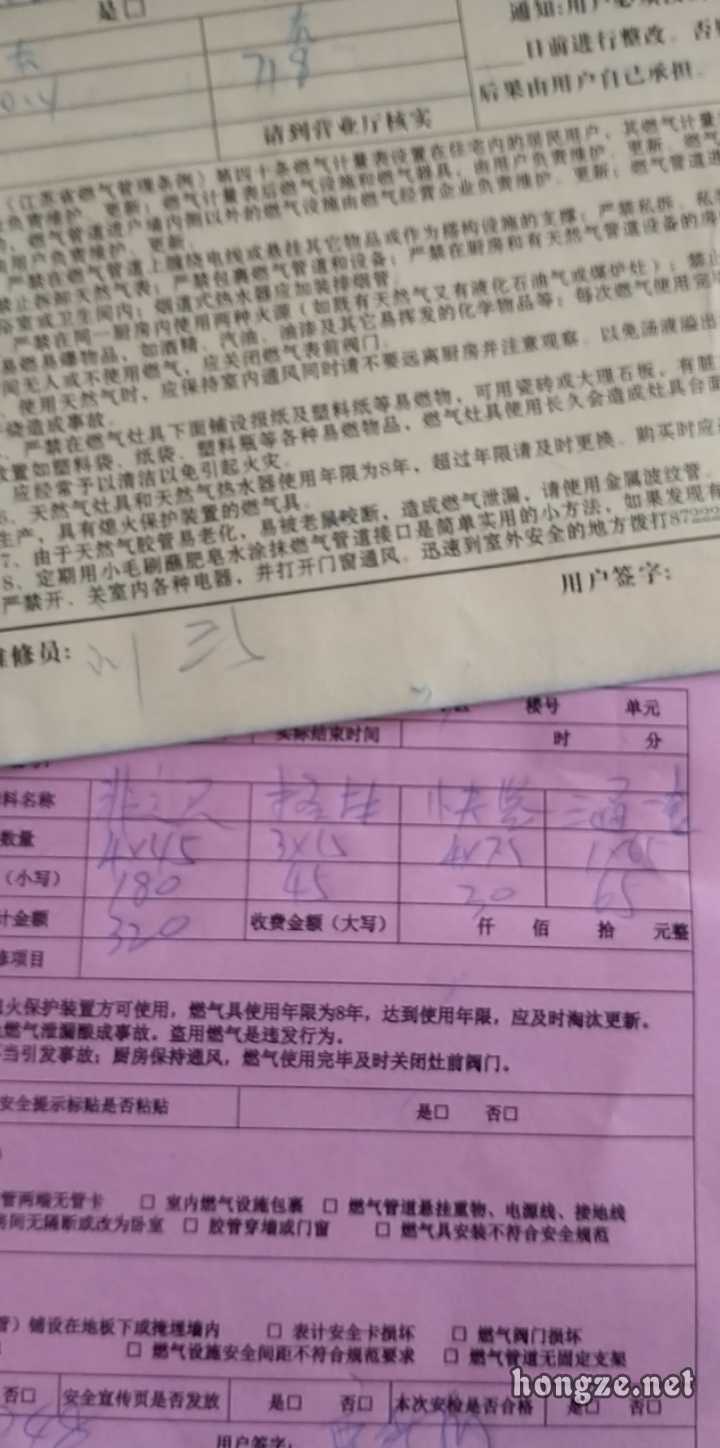 是□
通知:用户必须按
日前进行整改。否则
后果由用户自己承担。
718
请到营业厅核实
《江苏省燃气管理条例》第四十条燃气计量表设置在住宅内的居民用户，其燃气计量
负责维护、更新；燃气计量表后燃气设施和燃气器具，由用户负责维护、更新。燃气
燃气管道进户墙内侧以外的燃气设施由燃气经营企业负责维护、更新；燃气管道进
用户负责维护、更新。
严禁在燃气管道上缠绕电线或悬挂其它物品或作为搭构设施的支撑；严禁私拆、私
禁止拆卸天然气表；严禁包裹燃气管道和设备；严禁在厨房和有天然气管道设备的房
浴室或卫生间内；烟道式热水器应加装排烟管。
严禁在同一厨房内使用两种火源（如既有天然气又有液化石油气或煤炉灶）；禁止
易燃易爆物品，如酒精、汽油、油漆及其它易挥发的化学物品等；每次燃气使用完毕
间无人或不使用燃气，应关闭燃气表前阀门。
使用天然气时，应保持室内通风同时请不要远离厨房并注意观察，以免汤液溢出
烧造成事故。
严禁在燃气灶具下面铺设报纸及塑料纸等易燃物，可用瓷砖或大理石板，有脏
放置如塑料袋、纸袋、塑料瓶等各种易燃物品，燃气灶具使用长久会造成灶具台面
应经常予以清洁以免引起火灾。
6、天然气灶具和天然气热水器使用年限为8年，超过年限请及时更换。购买时应
生产，具有熄火保护装置的燃气具。
7、由于天然气胶管易老化，易被老鼠咬断，造成燃气泄漏，请使用金属波纹管。
8、定期用小毛刷蘸肥皂水涂抹燃气管道接口是简单实用的小方法，如果发现有
严禁开、关室内各种电器，并打开门窗通风。迅速到室外安全的地方拨打87222
用户签字:
维修员:
楼号 单元
实际结束时间 时 分
料名称
数量 4×45 3×15 4×7.5 1×65
（小写） 180 45 30 65
计金额 320 收费金额（大写） 仟 佰 拾 元整
修项目
火保护装置方可使用，燃气具使用年限为8年，达到使用年限，应及时淘汰更新。
燃气泄漏酿成事故。盗用燃气是违发行为。
当引发事故；厨房保持通风，燃气使用完毕及时关闭灶前阀门。
安全提示标贴是否粘贴 是□ 否□
管两端无管卡 □ 室内燃气设施包裹 □ 燃气管道悬挂重物、电源线、接地线
房间无隔断或改为卧室 □ 胶管穿墙或门窗 □ 燃气具安装不符合安全规范
管）铺设在地板下或掩埋墙内 □ 表计安全卡损坏 □ 燃气阀门损坏
□ 燃气设施安全间距不符合规范要求 □ 燃气管道无固定支架
否□ 安全宣传页是否发放 是□ 否□ 本次安检是否合格 是□ 否□
用户签字:
hongze.net